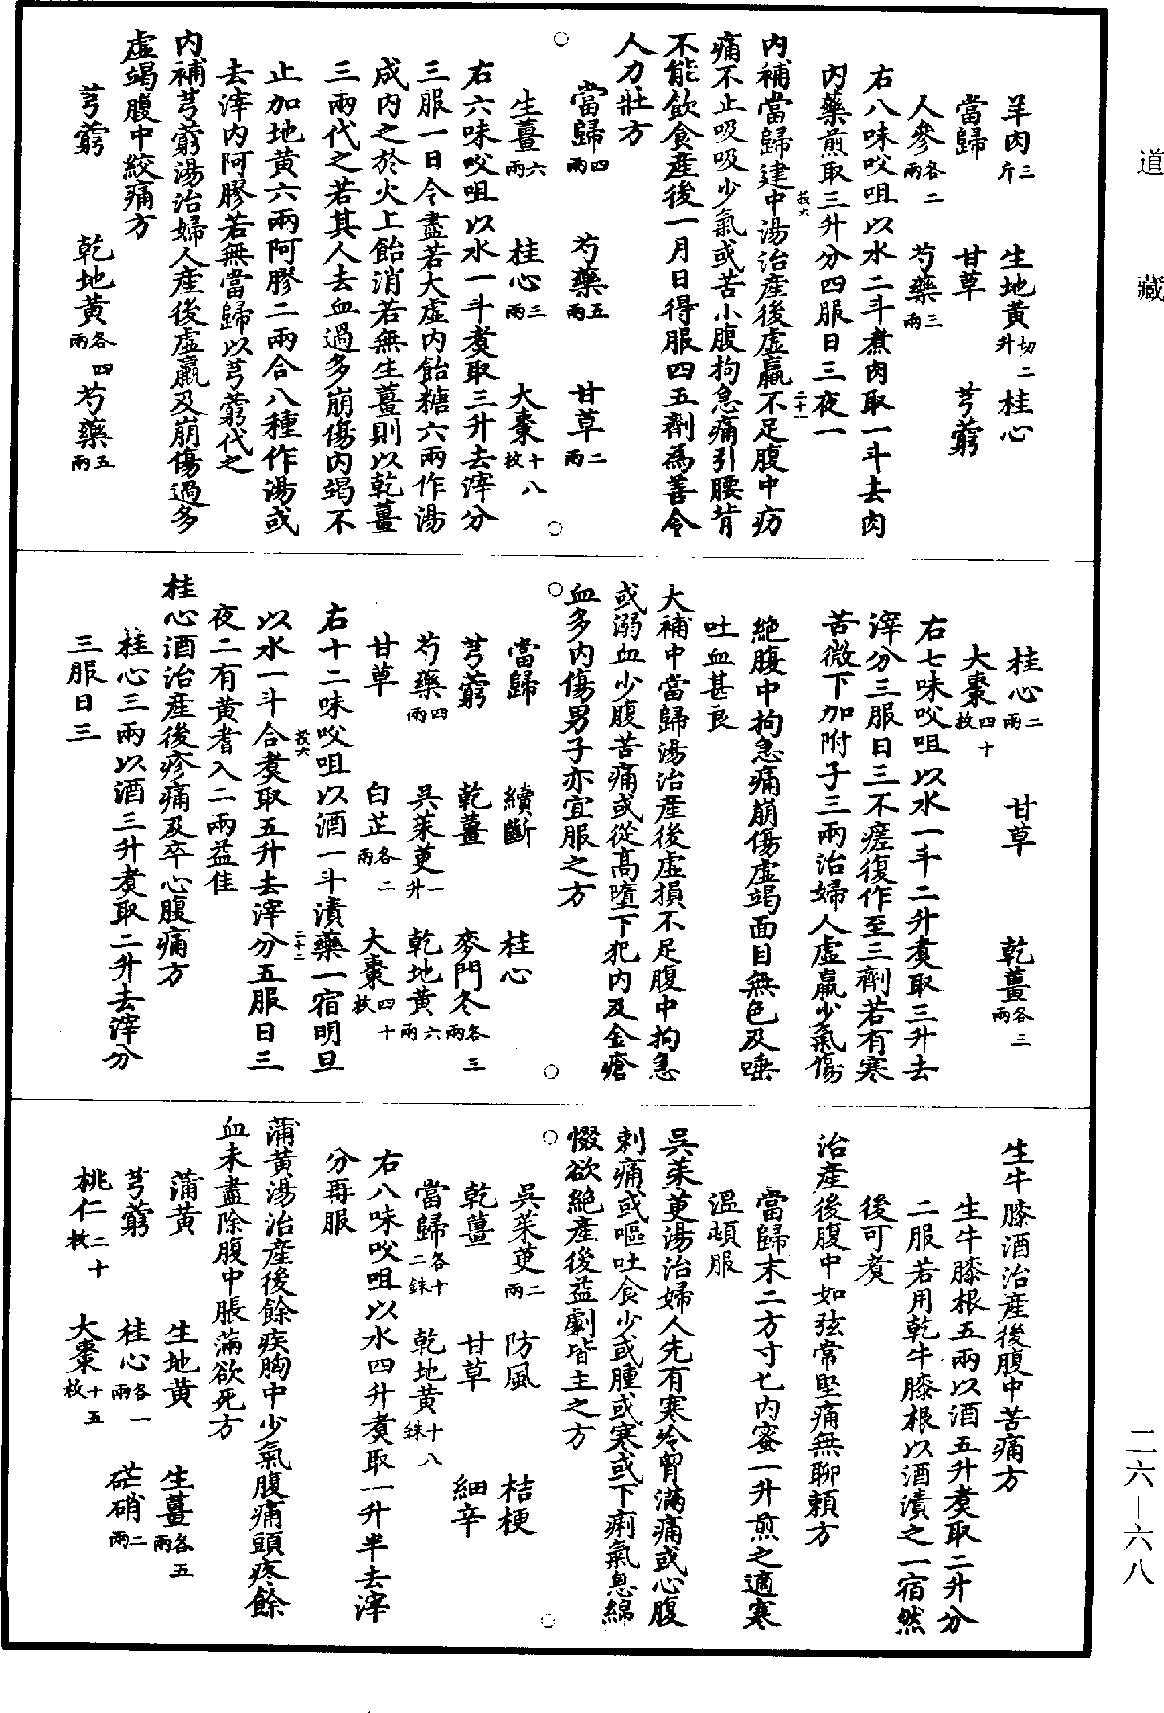 道藏
羊肉三斤　生地黃切二升　桂心
當歸　甘草　芎藭
人參各二兩　芍藥三兩
右八味㕮咀以水二斗煮肉取一斗去肉
內藥煎取三升分四服日三夜一
內補當歸建中湯治產後虛羸不足腹中㽲
痛不止吸吸少氣或苦小腹拘急痛引腰背
不能飲食產後一月日得服四五劑為善令
人力壯方
當歸四兩　芍藥五兩　甘草二兩
生薑六兩　桂心三兩　大棗十八枚
右六味㕮咀以水一斗煑取三升去滓分
三服一日令盡若大虛內飴糖六兩作湯
成內之於火上飴消若無生薑則以乾薑
三兩代之若其人去血過多崩傷內竭不
止加地黃六兩阿膠二兩合八種作湯或
去滓內阿膠若無當歸以芎藭代之
內補芎藭湯治婦人產後虛羸及崩傷過多
虛竭腹中絞痛方
芎藭　乾地黃各四兩　芍藥五兩
桂心二兩　甘草　乾薑各三兩
大棗四十枚
右七味㕮咀以水一斗二升煑取三升去
滓分三服日三不瘥復作至三劑若有寒
苦微下加附子三兩治婦人虛羸少氣傷
絕腹中拘急痛崩傷虛竭面目無色及唾
吐血甚良
大補中當歸湯治產後虛損不足腹中拘急
或溺血少腹苦痛或從高墮下犯內及金瘡
血多內傷男子亦宜服之方
當歸　續斷　桂心
芎藭　乾薑　麥門冬各三兩
芍藥四兩　吳茱萸一升　乾地黃六兩
甘草　白芷各二兩　大棗四十枚
右十二味㕮咀以酒一斗漬藥一宿明旦
以水一斗合煑取五升去滓分五服日三
夜二有黃耆入二兩益佳
桂心酒治產後疹痛及卒心腹痛方
桂心三兩以酒三升煑取二升去滓分
三服日三
生牛膝酒治產後腹中苦痛方
生牛膝根五兩以酒五升煑取二升分
二服若用乾牛膝根以酒漬之一宿然
後可煑
治產後腹中如弦常堅痛無聊賴方
當歸末二方寸匕內蜜一升煎之適寒
溫頓服
吳茱萸湯治婦人先有寒冷胷滿痛或心腹
刺痛或嘔吐食少或腫或寒或下痢氣息綿
惙欲絕產後益劇皆主之方
吳茱萸二兩　防風　桔梗
乾薑　甘草　細辛
當歸各十二銖　乾地黃十八銖
右八味㕮咀以水四升煑取一升半去滓
分再服
蒲黃湯治產後餘疾胸中少氣腹痛頭疼餘
血未盡除腹中脹滿欲死方
蒲黃　生地黃　生薑各五兩
芎藭　桂心各一兩　芒硝二兩
桃仁二十枚　大棗十五枚
二六—六八